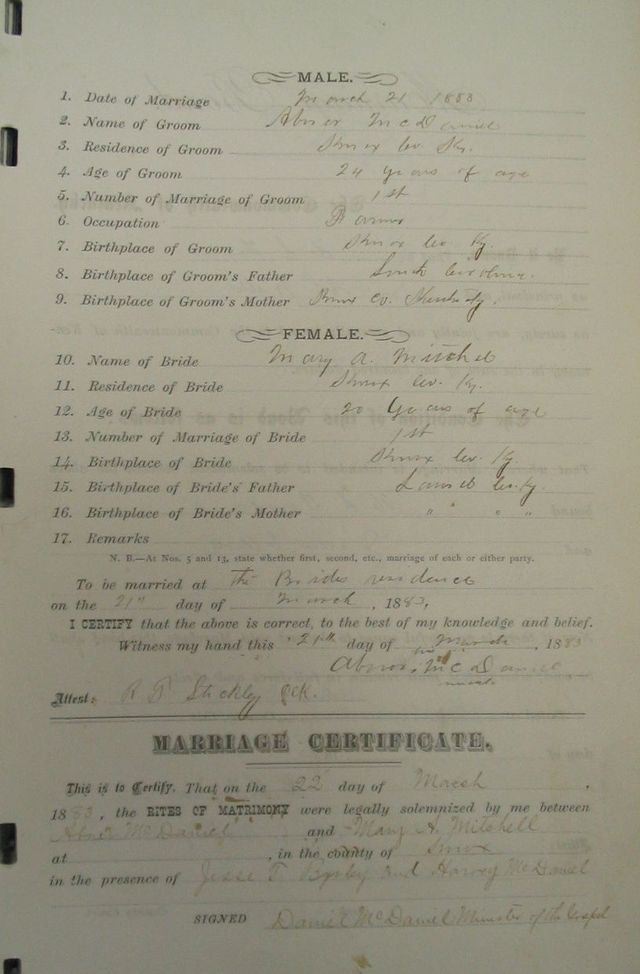 MALE.
1. Date of Marriage March 21 1883
2. Name of Groom Abner McDaniel
3. Residence of Groom Knox Co. Ky.
4. Age of Groom 24 years of age
5. Number of Marriage of Groom 1st
6. Occupation Farmer
7. Birthplace of Groom Knox Co. Ky.
8. Birthplace of Groom's Father South Carolina.
9. Birthplace of Groom's Mother Knox Co. Kentucky.
FEMALE.
10. Name of Bride Mary A. Mitchel
11. Residence of Bride Knox Co. Ky.
12. Age of Bride 20 Years of age
13. Number of Marriage of Bride 1st
14. Birthplace of Bride Knox Co. Ky
15. Birthplace of Bride's Father Laurel Co. Ky.
16. Birthplace of Bride's Mother " " " "
17. Remarks
N. B.—At Nos. 5 and 13, state whether first, second, etc., marriage of each or either party.
To be married at the Brides residence
on the 21st day of March, 1883,
I CERTIFY that the above is correct, to the best of my knowledge and belief.
Witness my hand this 21st day of March, 1883
his
Abner McDaniel
mark
Attest: R T Stickley Clk.
MARRIAGE CERTIFICATE.
This is to Certify, That on the 22 day of March,
1883, the RITES OF MATRIMONY were legally solemnized by me between
Abner McDaniel and Mary A. Mitchell
at , in the county of Knox
in the presence of Jesse T. and Harvey McDaniel
SIGNED Daniel McDaniel Minister of the Gospel